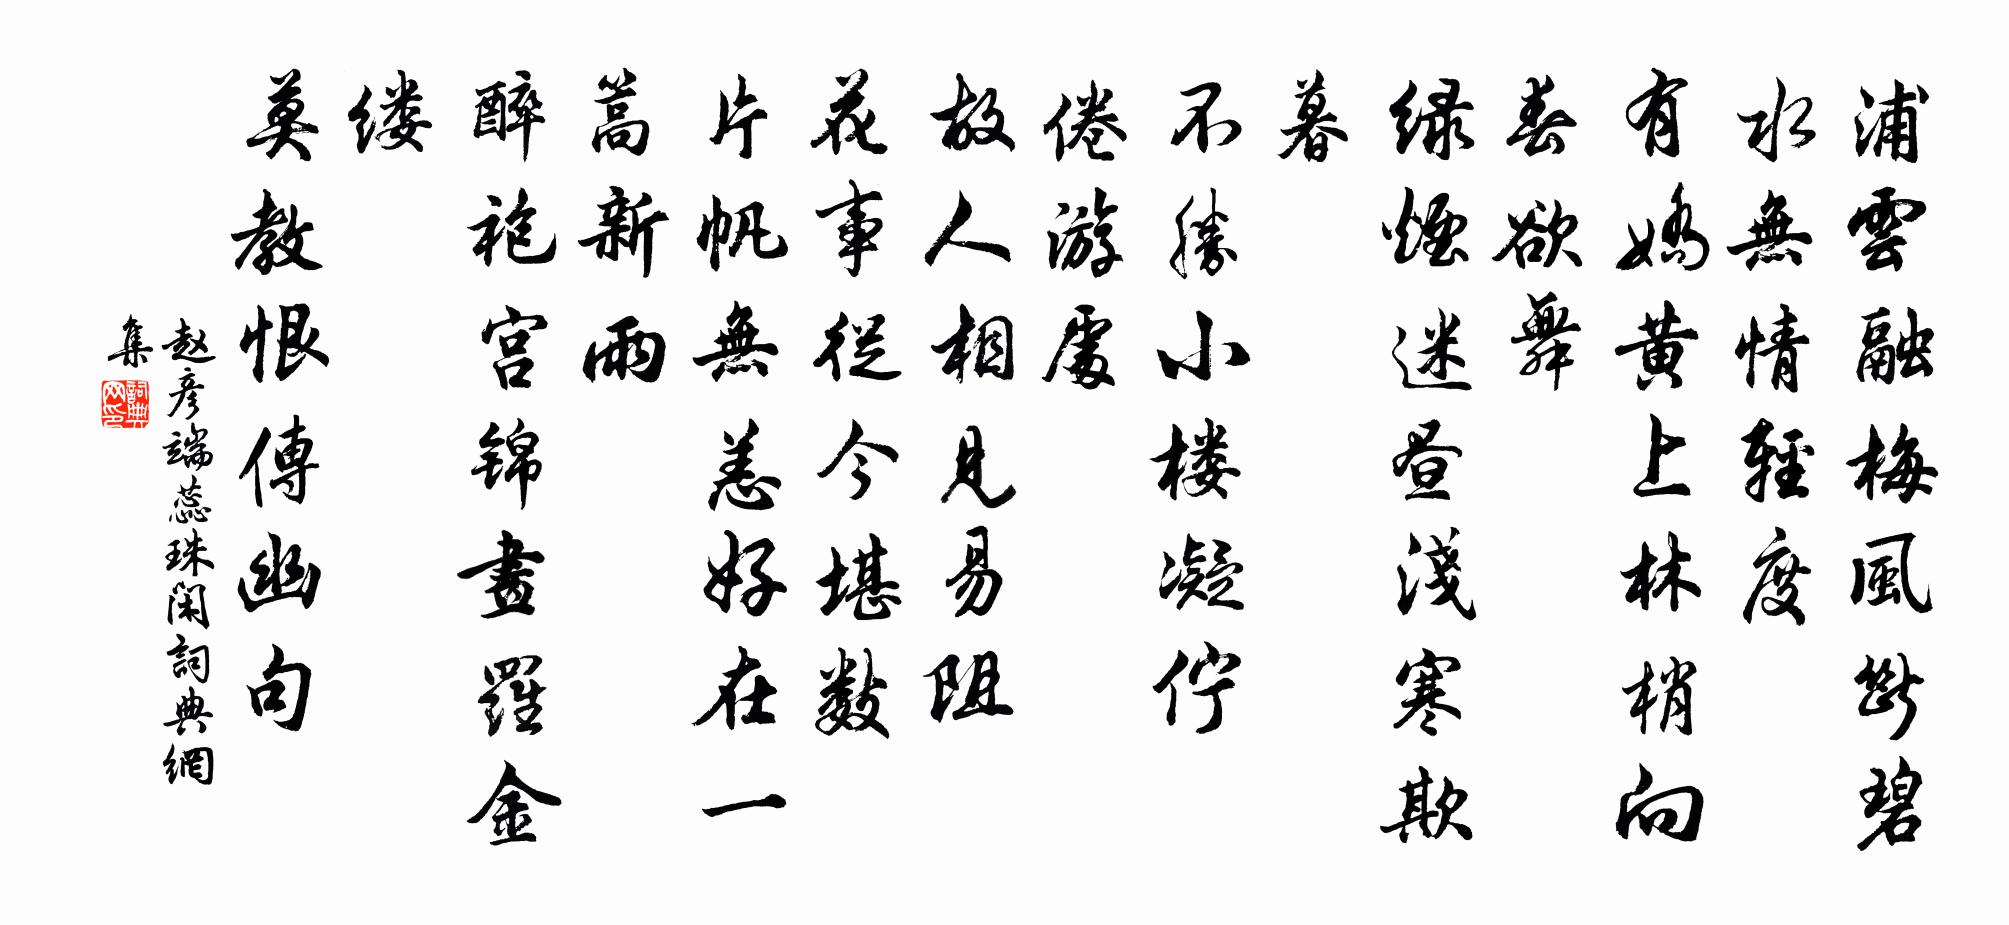 浦雲融梅風斷碧
水無情輕度
有嬌黄上林梢向
春欲舞
绿煙迷昼淺寒欺
暮
不勝小楼凝佇
倦游處
故人相見易阻
花事從今堪数
片帆無恙好在一
篙新雨
醉袍宫锦畫羅金
缕
莫教恨傳幽句
赵彦端蕊珠閑詞典網
集
詞典网印